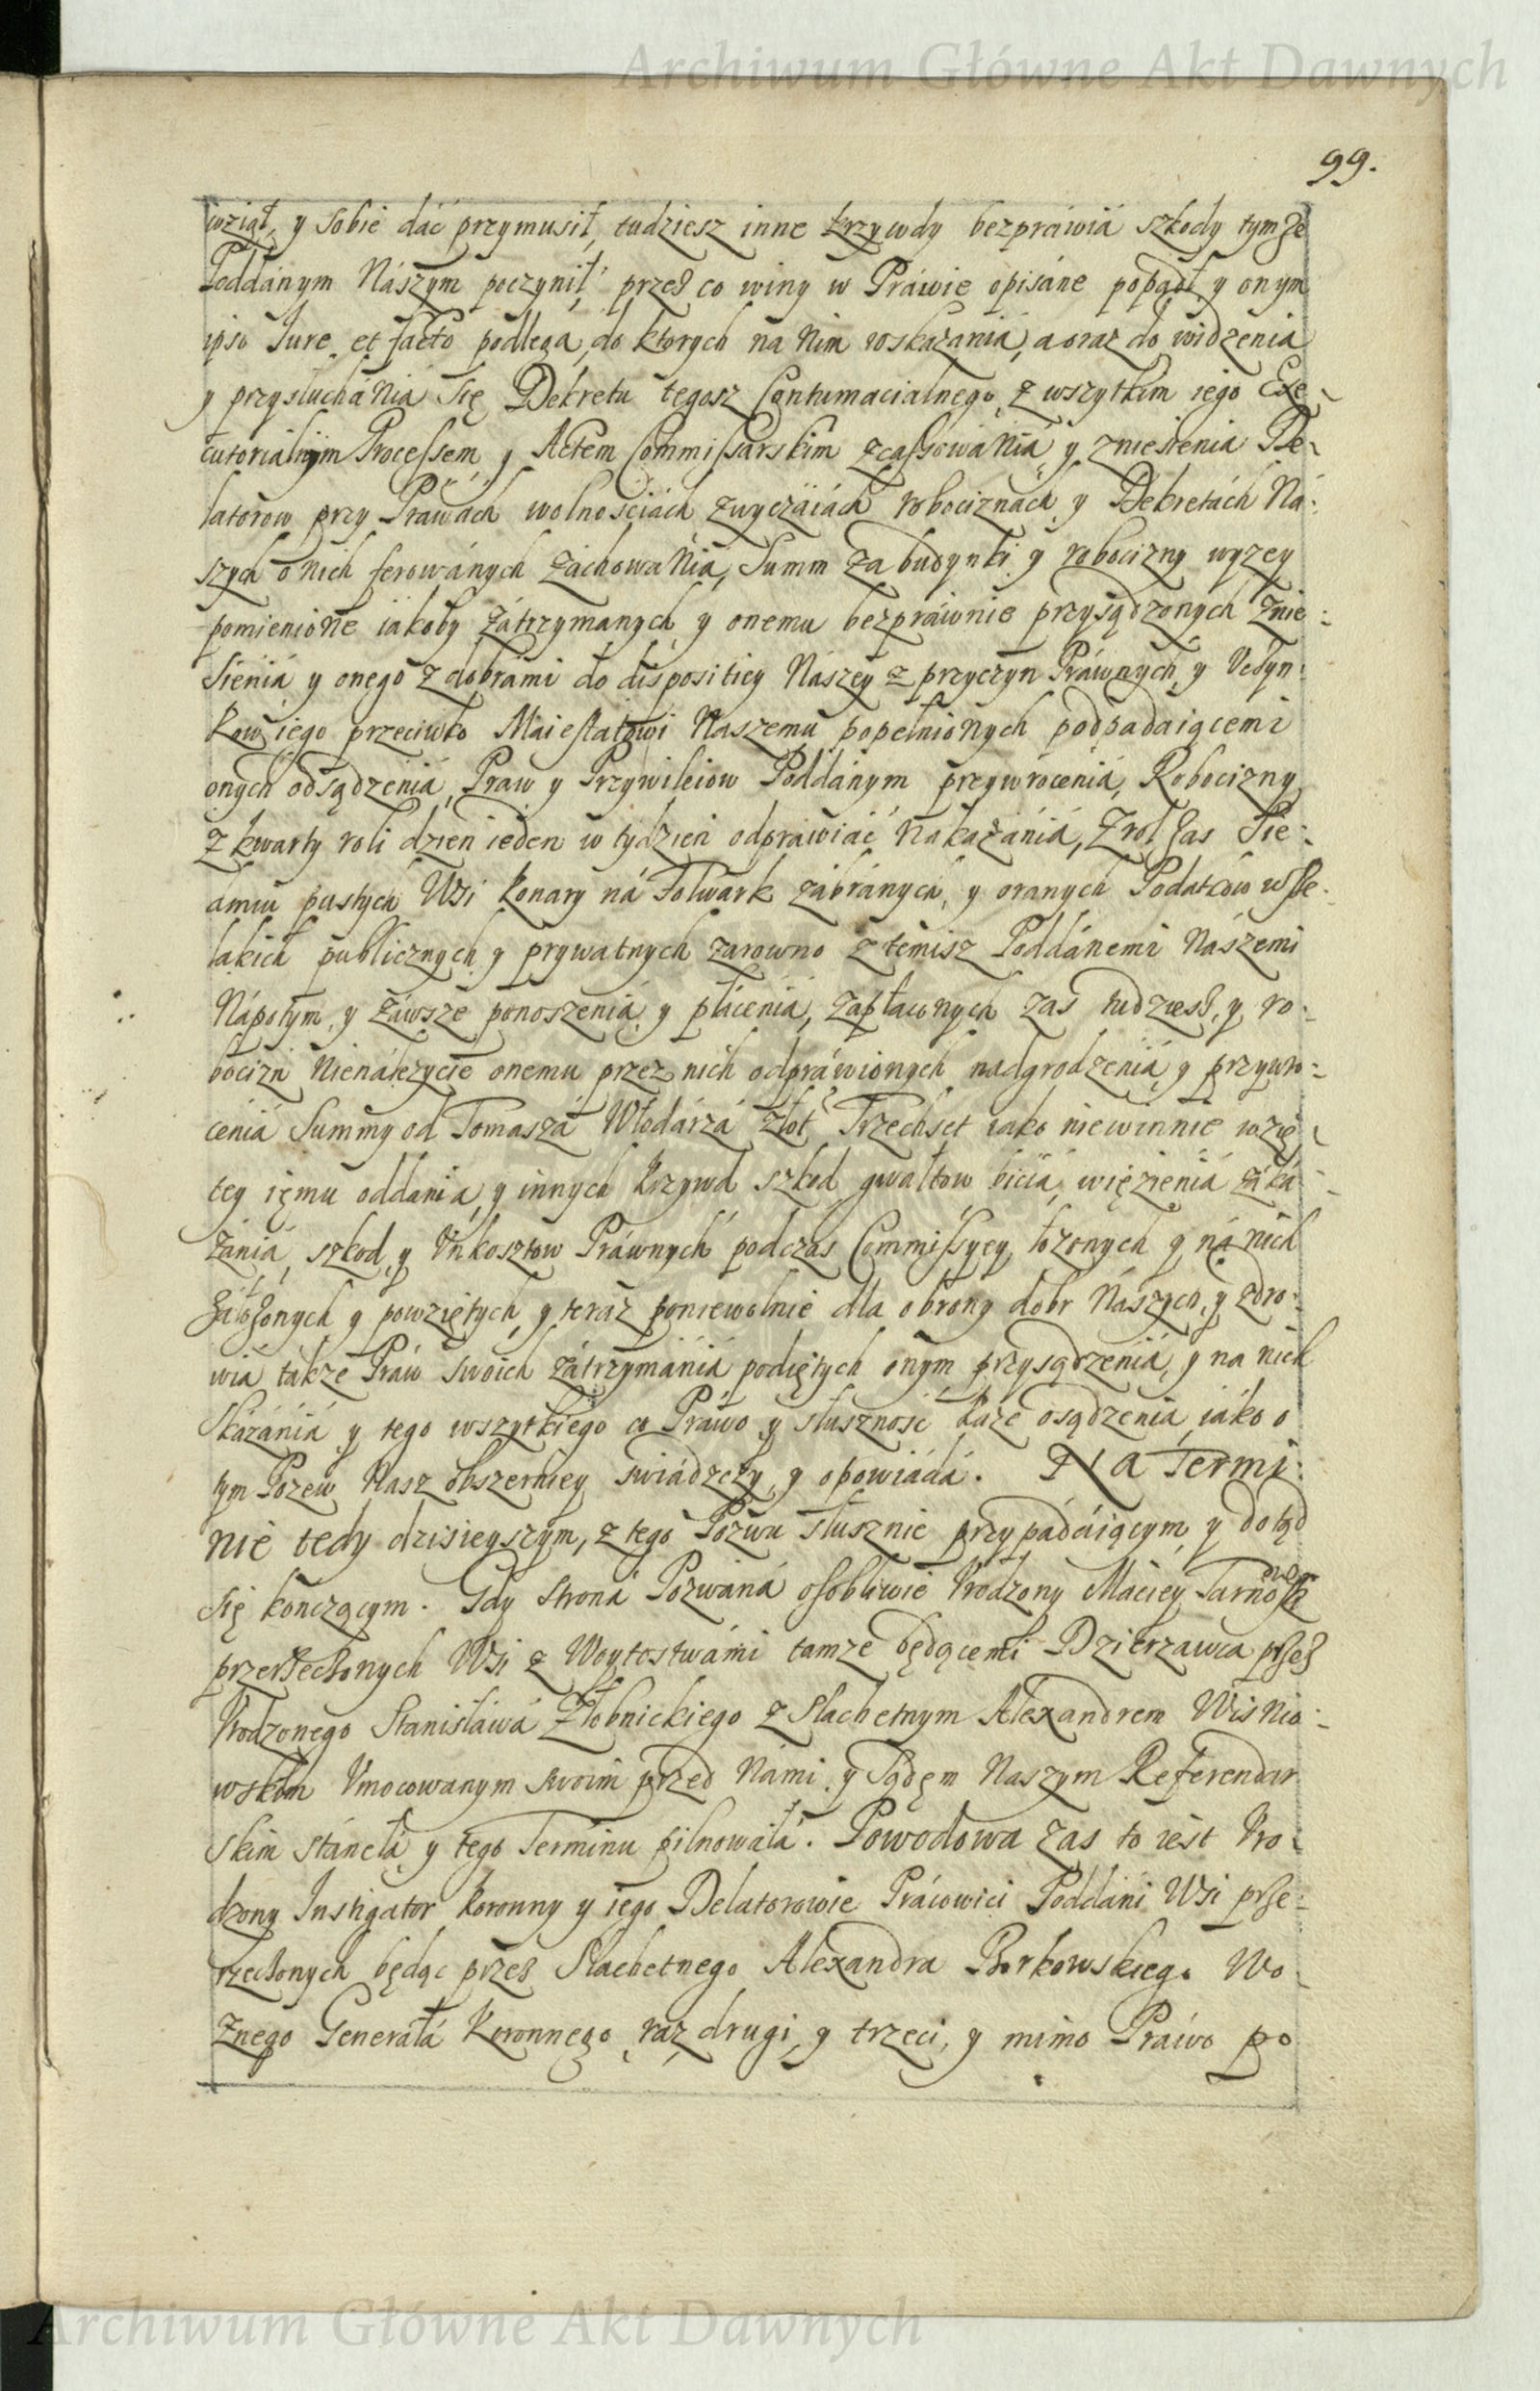 Archiwum Główne Akt Dawnych
99.
wziął, y sobie dáć przymusił, tudziesz inne krzywdy bezpráwiá szkody tymże
Poddánym Nászym poczynił, przes co winy w Práwie opisáne popadł, y onym
ipso Jure et facto podlega, do ktorych na nim wskazániá, a oraz do widzenia
y przysłuchánia się Dekretu tegosz Contumacialnego, z wszytkim iego Exe-
cutorialnym Processem, y Actem Commissarskim zcassowánia, y zniesienia De-
latorow przy Práwach wolnościách zwyczáiách robociznách, y Dekretách Ná-
szych o nich ferowánych záchowánia, Summ za budynki y robocizny wyzey
pomienione iákoby zátrzymanych, y onemu bezpráwnie przysądzonych znie-
sieniá, y onego z dobrámi do dispositiey Nászey z przyczyn Práwnych, y Vczyn-
kow iego przeciwko Maiestatowi Naszemu popełnionych podpadaiącemi
onych odsądzeniá, Praw y Przywileiow Poddánym przywroceniá, Robocizny
z kwarty roli dzien ieden w tydzien odprawiáć nakazániá, z rol zas Sie-
dmiu pustych Wsi Konary ná Folwark zábránych, y oranych Podatkow wsze-
lakich publicznych y prywatnych zarowno z temisz Poddánemi Nászemi
Nápotym, y záwsze ponoszeniá, y płáceniá, zapłaconych zas tudziesz, y ro-
bocizn nienáleżycie onemu przez nich odpráwionych nadgrodzeniá, y przywro-
ceniá Summy od Tomaszá Włodárzá złot Trzechset iáko niewinnie wzię-
tey iemu oddania, y innych krzywd szkod gwałtow biciá, więzieniá záká-
zániá, szkod, y Vnkosztow Práwnych podczas Commissyey łożonych y ná nich
záłożonych y powziętych, y teraz poniewolnie dla obrony dobr Nászych, y zdro-
wiá także Práw swoich zátrzymániá podiętych onym przysądzeniá, y na nich
skazániá y tego wszytkiego co Práwo y słuszność każe osądzeniá, iáko o
tym Pozew Nasz obszerniey świádczy, y opowiádá. Na Termi-
nie tedy dzisieyszym, z tego Pozwu słusznie przypadáiącym, y dotąd
się kończącym. Gdy Stroná Pozwáná osobliwie Vrodzony Máciey Tarnowski
przerzeczonych Wsi z Woytostwámi tamze będącemi Dzierzawca przez
Vrodzonego Stanisławá Złobnickiego z Slachetnym Alexandrem Wisnio-
wskim Vmocowanym swoim przed Námi, y Sądem Naszym Referendar
skim stánełá, y tego Terminu pilnowałá. Powodowa zas to iest Vro-
dzony Instigator Koronny y iego Delatorowie Prácowici Poddáni Wsi prze-
rzeczonych będąc przez Slachetnego Alexandra Borkowskiego Wo-
żnego Generałá Koronnego, raz, drugi, y trzeci, y mimo Práwo po
Archiwum Główne Akt Dawnych